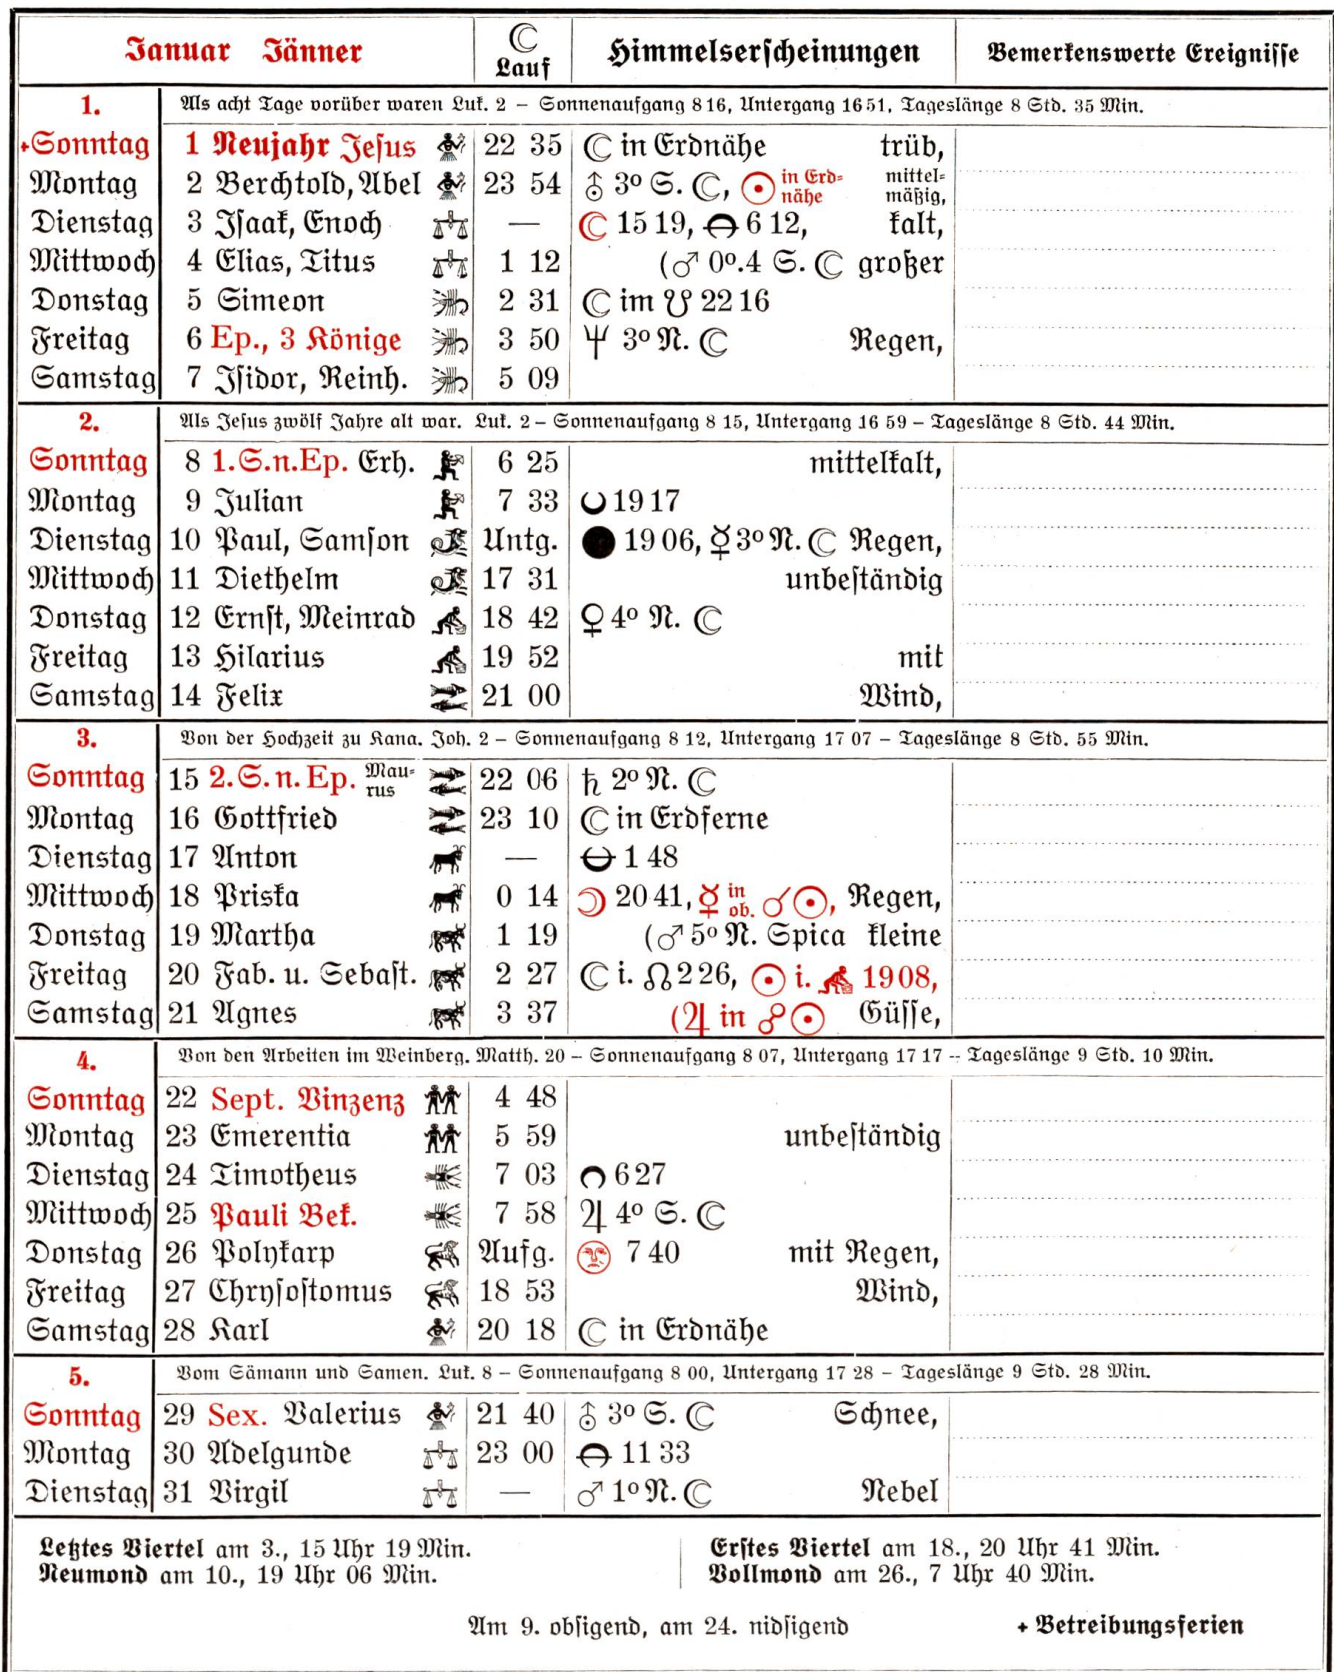 Januar Jänner ☾ Lauf Himmelserscheinungen Bemerkenswerte Ereignisse
1. Als acht Tage vorüber waren Luk. 2 – Sonnenaufgang 8 16, Untergang 16 51, Tageslänge 8 Std. 35 Min.
+Sonntag 1 Neujahr Jesus 22 35 ☾ in Erdnähe trüb,
Montag 2 Berchtold, Abel 23 54 ⛢ 3° S. ☾, ☉ in Erdnähe mittelmäßig,
Dienstag 3 Isaak, Enoch ♎ — ☾ 15 19, 6 12, kalt,
Mittwoch 4 Elias, Titus ♎ 1 12 (♂ 0°.4 S. ☾ großer
Donstag 5 Simeon 2 31 ☾ im ☋ 22 16
Freitag 6 Ep., 3 Könige 3 50 ♆ 3° N. ☾ Regen,
Samstag 7 Isidor, Reinh. 5 09
2. Als Jesus zwölf Jahre alt war. Luk. 2 – Sonnenaufgang 8 15, Untergang 16 59 – Tageslänge 8 Std. 44 Min.
Sonntag 8 1.S.n.Ep. Erh. 6 25 mittelkalt,
Montag 9 Julian 7 33 19 17
Dienstag 10 Paul, Samson Untg. ● 19 06, ☿ 3° N. ☾ Regen,
Mittwoch 11 Diethelm 17 31 unbeständig
Donstag 12 Ernst, Meinrad 18 42 ♀ 4° N. ☾
Freitag 13 Hilarius 19 52 mit
Samstag 14 Felix 21 00 Wind,
3. Von der Hochzeit zu Kana. Joh. 2 – Sonnenaufgang 8 12, Untergang 17 07 – Tageslänge 8 Std. 55 Min.
Sonntag 15 2.S.n.Ep. Mau-rus 22 06 ♄ 2° N. ☾
Montag 16 Gottfried 23 10 ☾ in Erdferne
Dienstag 17 Anton — 1 48
Mittwoch 18 Priska 0 14 ☽ 20 41, ☿ in ob. ☌ ☉, Regen,
Donstag 19 Martha 1 19 (♂ 5° N. Spica kleine
Freitag 20 Fab. u. Sebast. 2 27 ☾ i. ☊ 2 26, ☉ i. 19 08,
Samstag 21 Agnes 3 37 (♃ in ☍ ☉ Güsse,
4. Von den Arbeiten im Weinberg. Matth. 20 – Sonnenaufgang 8 07, Untergang 17 17 – Tageslänge 9 Std. 10 Min.
Sonntag 22 Sept. Vinzenz 4 48
Montag 23 Emerentia 5 59 unbeständig
Dienstag 24 Timotheus 7 03 6 27
Mittwoch 25 Pauli Bek. 7 58 ♃ 4° S. ☾
Donstag 26 Polykarp Aufg. 7 40 mit Regen,
Freitag 27 Chrysostomus 18 53 Wind,
Samstag 28 Karl 20 18 ☾ in Erdnähe
5. Vom Sämann und Samen. Luk. 8 – Sonnenaufgang 8 00, Untergang 17 28 – Tageslänge 9 Std. 28 Min.
Sonntag 29 Sex. Valerius 21 40 ⛢ 3° S. ☾ Schnee,
Montag 30 Adelgunde 23 00 11 33
Dienstag 31 Virgil — ♂ 1° N. ☾ Nebel
Letztes Viertel am 3., 15 Uhr 19 Min. Erstes Viertel am 18., 20 Uhr 41 Min.
Neumond am 10., 19 Uhr 06 Min. Vollmond am 26., 7 Uhr 40 Min.
Am 9. obsigend, am 24. nidsigend + Betreibungsferien